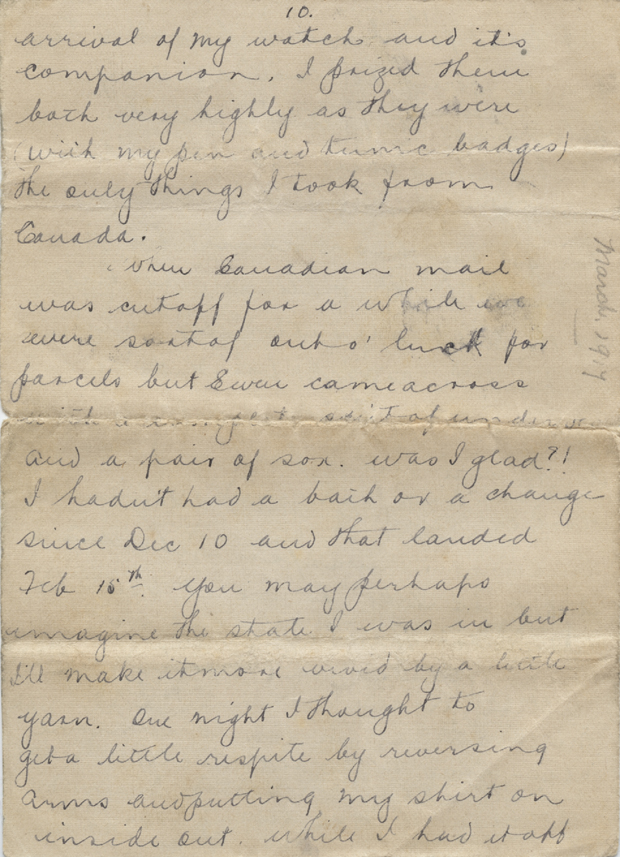 10.
arrival of my watch and it's
companion. I prized them
both very highly as they were
(with my pen and tunic badges)
the only things I took from
Canada.
When Canadian mail
was cutoff for a while we
were sortof out o' luck for
parcels but Ewen cameacross
with a complete suit of under
and a pair of sox. was I glad?!
I hadn't had a bath or a change
since Dec 10 and that landed
Feb 15th. You may perhaps
imagine the state I was in but
I'll make itmore vivid by a little
yarn. One night I thought to
get a little respite by reversing
arms andputting my shirt on
inside out. while I had it off
March 1917